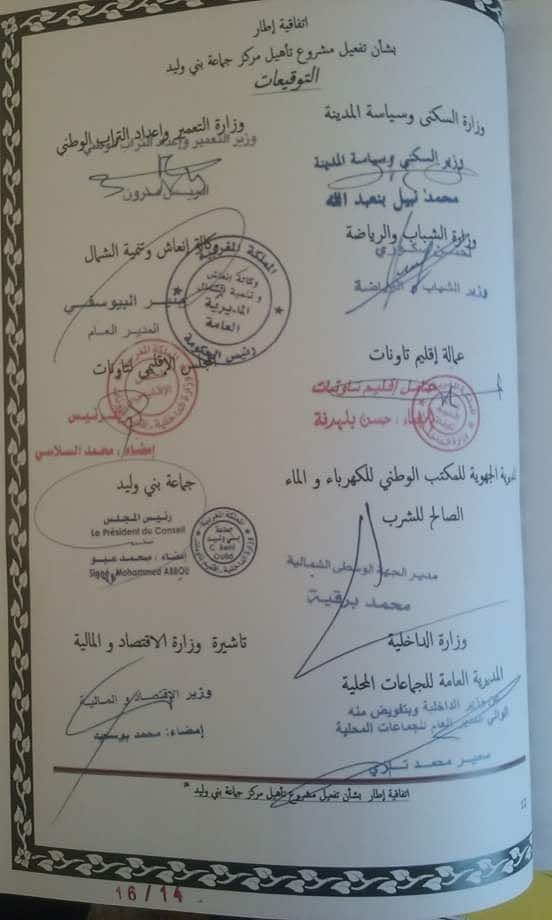 اتفاقية إطار
بشأن تفعيل مشروع تأهيل مركز جماعة بني وليد
التوقيعات
وزارة السكنى وسياسة المدينة
وزير السكنى وسياسة المدينة
محمد نبيل بنعبد الله
وزارة التعمير وإعداد التراب الوطني
وزير التعمير وإعداد التراب الوطني
وزارة الشباب والرياضة
وزير الشباب و الرياضة
وكالة إنعاش وتنمية الشمال
منير البيوسفي
المدير العام
المملكة المغربية
وكالة إنعاش
و تنمية الشمال
المديرية
العامة
رئيس الحكومة
عمالة إقليم تاونات
عامل إقليم تاونات
إمضاء : حسن بلهدفة
المجلس الإقليمي لتاونات
الرئيس
إمضاء : محمد السلاسي
المديرية الجهوية للمكتب الوطني للكهرباء و الماء
الصالح للشرب
مدير الجهة الوسطى الشمالية
محمد برقية
جماعة بني وليد
رئيس المجلس
Le Président du Conseil
إمضاء : محمد عبو
Signé Mohammed ABBOU
المملكة المغربية
جماعة
بني وليد
C. Beni
Oulid
وزارة الداخلية
المديرية العامة للجماعات المحلية
عن وزير الداخلية وبتفويض منه
الوالي المدير العام للجماعات المحلية
سمير محمد تازي
تاشيرة وزارة الاقتصاد و المالية
وزير الإقتصاد و المالية
إمضاء: محمد بوسعيد
اتفاقية إطار بشأن تفعيل مشروع تأهيل مركز جماعة بني وليد "
12
16 / 14